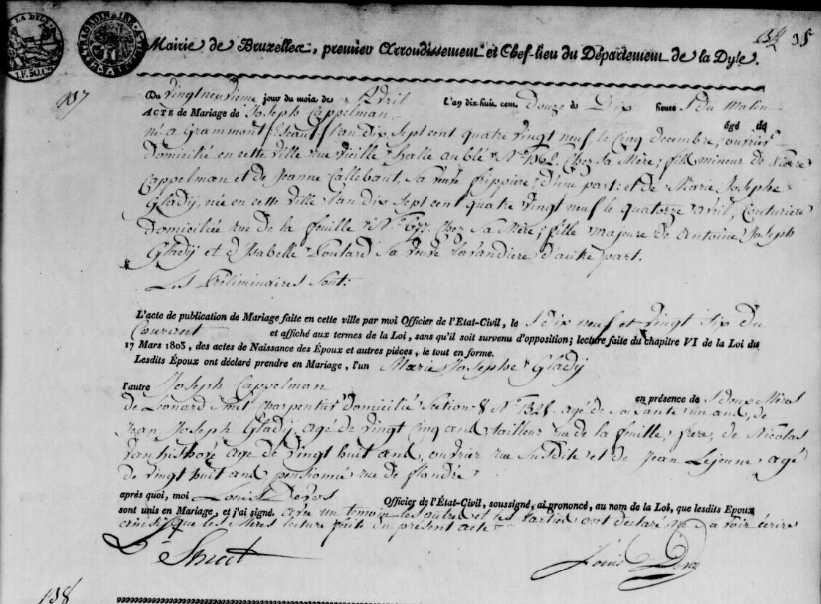 134 35
Mairie de Bruxelles, premier Arrondissement et Chef-lieu du Département de la Dyle.
137
Du vingt neuvieme jour du mois de d'avril l'an dix-huit cent Douze à Dix heures du Matin
Acte de Mariage de Joseph Cappelman âgé de
né a Grammont Escaut l'an dix Sept cent quatre vingt neuf, le cinq decembre, ouvrier
domicilié en cette ville rue vieille halle au blé N° 1362 chez sa Mère; fils mineur de
Cappelman et de Jeanne Callebaut, sa veuve frippiere, d'une part: et de Marie Josephe
Gladij, née en cette ville l'an dix Sept cent quatre vingt neuf le quatorze avril, Couturiere
domiciliée rue de la feuille N° 677 chez sa Mère; fille majeure de Antoine Joseph
Gladij et d'Isabelle sa veuve Lavandiere d'autre part.
Les Préliminaires Sont:
L'acte de publication de Mariage faite en cette ville par moi Officier de l'Etat-Civil, le dix neuf et vingt six du
Courent et affiché aux termes de la Loi, sans qu'il soit survenu d'opposition; lecture faite du chapitre VI de la Loi du
17 Mars 1803, des actes de Naissance des Époux et autres pièces, le tout en forme.
Lesdits Époux ont déclaré prendre en Mariage, l'un Marie Josephe Gladij
l'autre Joseph Cappelman en présence de
de Leonard Smet charpentier domicilié Section 8 N° age de soixante un ans, de
Jean Joseph Gladij agé de vingt cinq ans tailleur rue de la feuille, frere, de Nicolas
agé de vingt huit ans, ouvrier rue Susdite et de Jean Lejeune agé
de vingt huit ans pensionné rue de flandre
après quoi, moi Louis Devos Officier de l'État-Civil, soussigné, ai prononcé, au nom de la Loi, que lesdits Epoux
sont unis en Mariage, et j'ai signé. avec un temoin les autres et les parties ont declaré ne savoir écrire
ainsi que les Mères lecture faite du présent acte
L Smet
Louis Devos
138